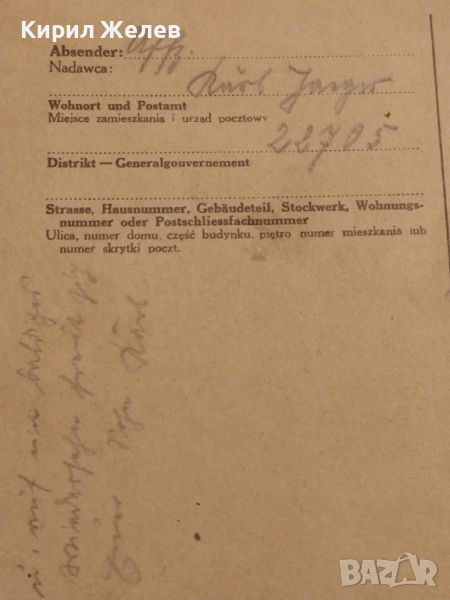 Кирил Желев
Absender: Uffz.
Nadawca: Karl Jaeger
Wohnort und Postamt
Miejsce zamieszkania i urząd pocztowy
22705
Distrikt — Generalgouvernement
Strasse, Hausnummer, Gebäudeteil, Stockwerk, Wohnungs-
nummer oder Postschliessfachnummer
Ulica, numer domu, część budynku, piętro numer mieszkania lub
numer skrytki poczt.
u. auf ein baldiges
Wiedersehen
Euer Karl
BAZAR